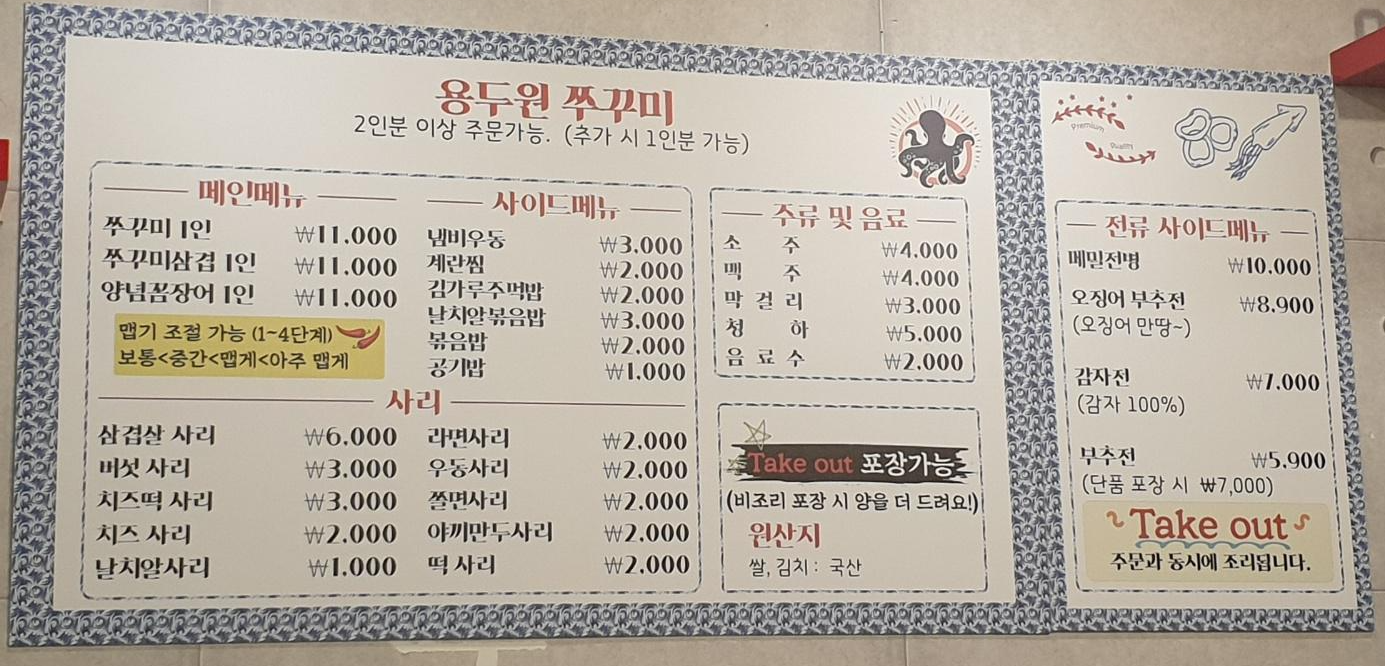 용두원 쭈꾸미
2인분 이상 주문가능. (추가 시 1인분 가능)
메인메뉴
쭈꾸미 1인 ₩11.000
쭈꾸미삼겹 1인 ₩11.000
양념꼼장어 1인 ₩11.000
맵기 조절 가능 (1~4단계)
보통<중간<맵게<아주 맵게
사이드메뉴
냄비우동 ₩3.000
계란찜 ₩2.000
김가루주먹밥 ₩2.000
날치알볶음밥 ₩3.000
볶음밥 ₩2.000
공기밥 ₩1.000
사리
삼겹살 사리 ₩6.000
버섯 사리 ₩3.000
치즈떡 사리 ₩3.000
치즈 사리 ₩2.000
날치알사리 ₩1.000
라면사리 ₩2.000
우동사리 ₩2.000
쫄면사리 ₩2.000
야끼만두사리 ₩2.000
떡 사리 ₩2.000
주류 및 음료
소 주 ₩4.000
맥 주 ₩4.000
막 걸 리 ₩3.000
청 하 ₩5.000
음 료 수 ₩2.000
Take out 포장가능
(비조리 포장 시 양을 더 드려요!)
원산지
쌀, 김치 : 국산
Premium
Quality
전류 사이드메뉴
메밀전병 ₩10.000
오징어 부추전 ₩8.900
(오징어 만땅~)
감자전 ₩7.000
(감자 100%)
부추전 ₩5.900
(단품 포장 시 ₩7,000)
Take out
주문과 동시에 조리됩니다.